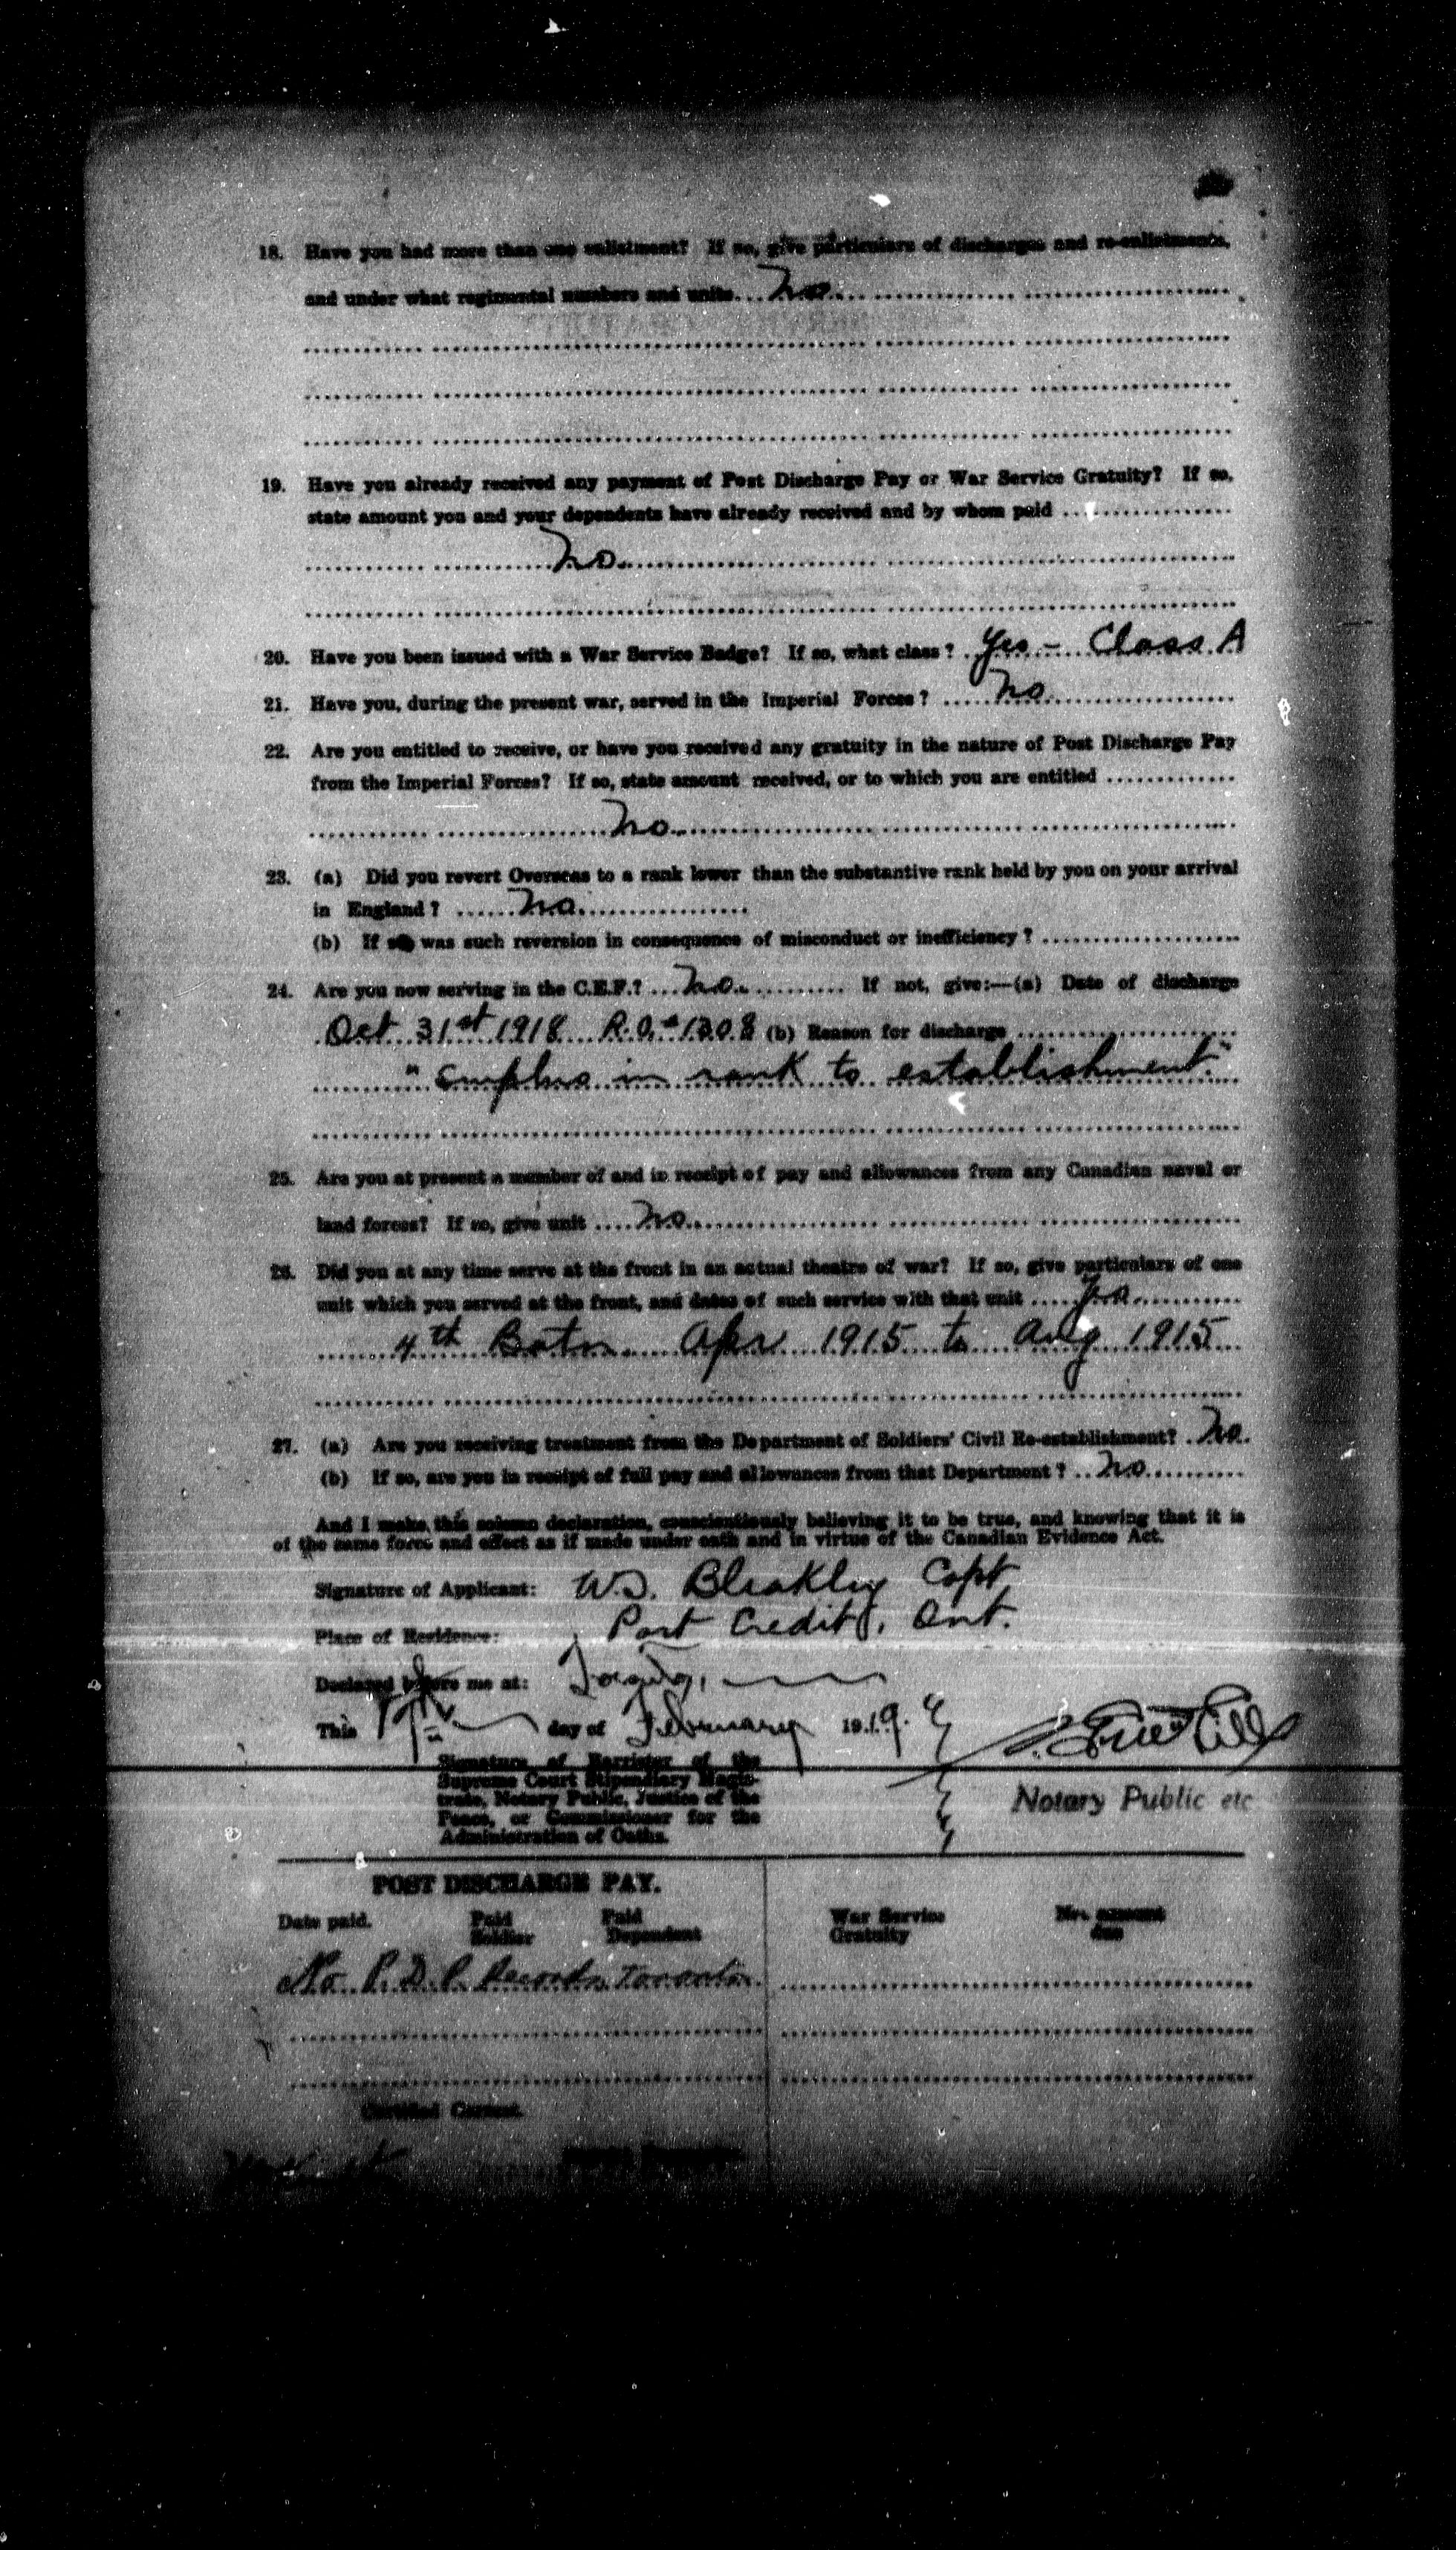 18. Have you had more than one enlistment? If so, give particulars of discharges and re-enlistments,
and under what regimental numbers and units... No
19. Have you already received any payment of Post Discharge Pay or War Service Gratuity? If so,
state amount you and your dependents have already received and by whom paid
No
20. Have you been issued with a War Service Badge? If so, what class? Yes - Class A
21. Have you, during the present war, served in the Imperial Forces? No
22. Are you entitled to receive, or have you received any gratuity in the nature of Post Discharge Pay
from the Imperial Forces? If so, state amount received, or to which you are entitled
No
23. (a) Did you revert Overseas to a rank lower than the substantive rank held by you on your arrival
in England? No
(b) If so was such reversion in consequence of misconduct or inefficiency?
24. Are you now serving in the C.E.F.? No If not, give:—(a) Date of discharge
Oct 31st 1918 R.O. 1308 (b) Reason for discharge
"Surplus in rank to establishment."
25. Are you at present a member of and in receipt of pay and allowances from any Canadian naval or
land forces? If so, give unit No
26. Did you at any time serve at the front in an actual theatre of war? If so, give particulars of one
unit which you served at the front, and dates of such service with that unit Yes
4th Batn. Apr 1915 to Aug 1915
27. (a) Are you receiving treatment from the Department of Soldiers' Civil Re-establishment? No
(b) If so, are you in receipt of full pay and allowances from that Department? No
And I make this solemn declaration, conscientiously believing it to be true, and knowing that it is
of the same force and effect as if made under oath and in virtue of the Canadian Evidence Act.
Signature of Applicant: W.S. Bleakley Capt
Place of Residence: Port Credit, Ont.
Declared before me at: Toronto,
This day of February 1919
Signature of Barrister of the
Supreme Court Stipendiary Magis-
trate, Notary Public, Justice of the
Peace, or Commissioner for the
Administration of Oaths.
Notary Public etc
POST DISCHARGE PAY.
Date paid. Paid Soldier Paid Dependent War Service Gratuity Net amount due
No P.D.P. Records Toronto.
Certified Correct.